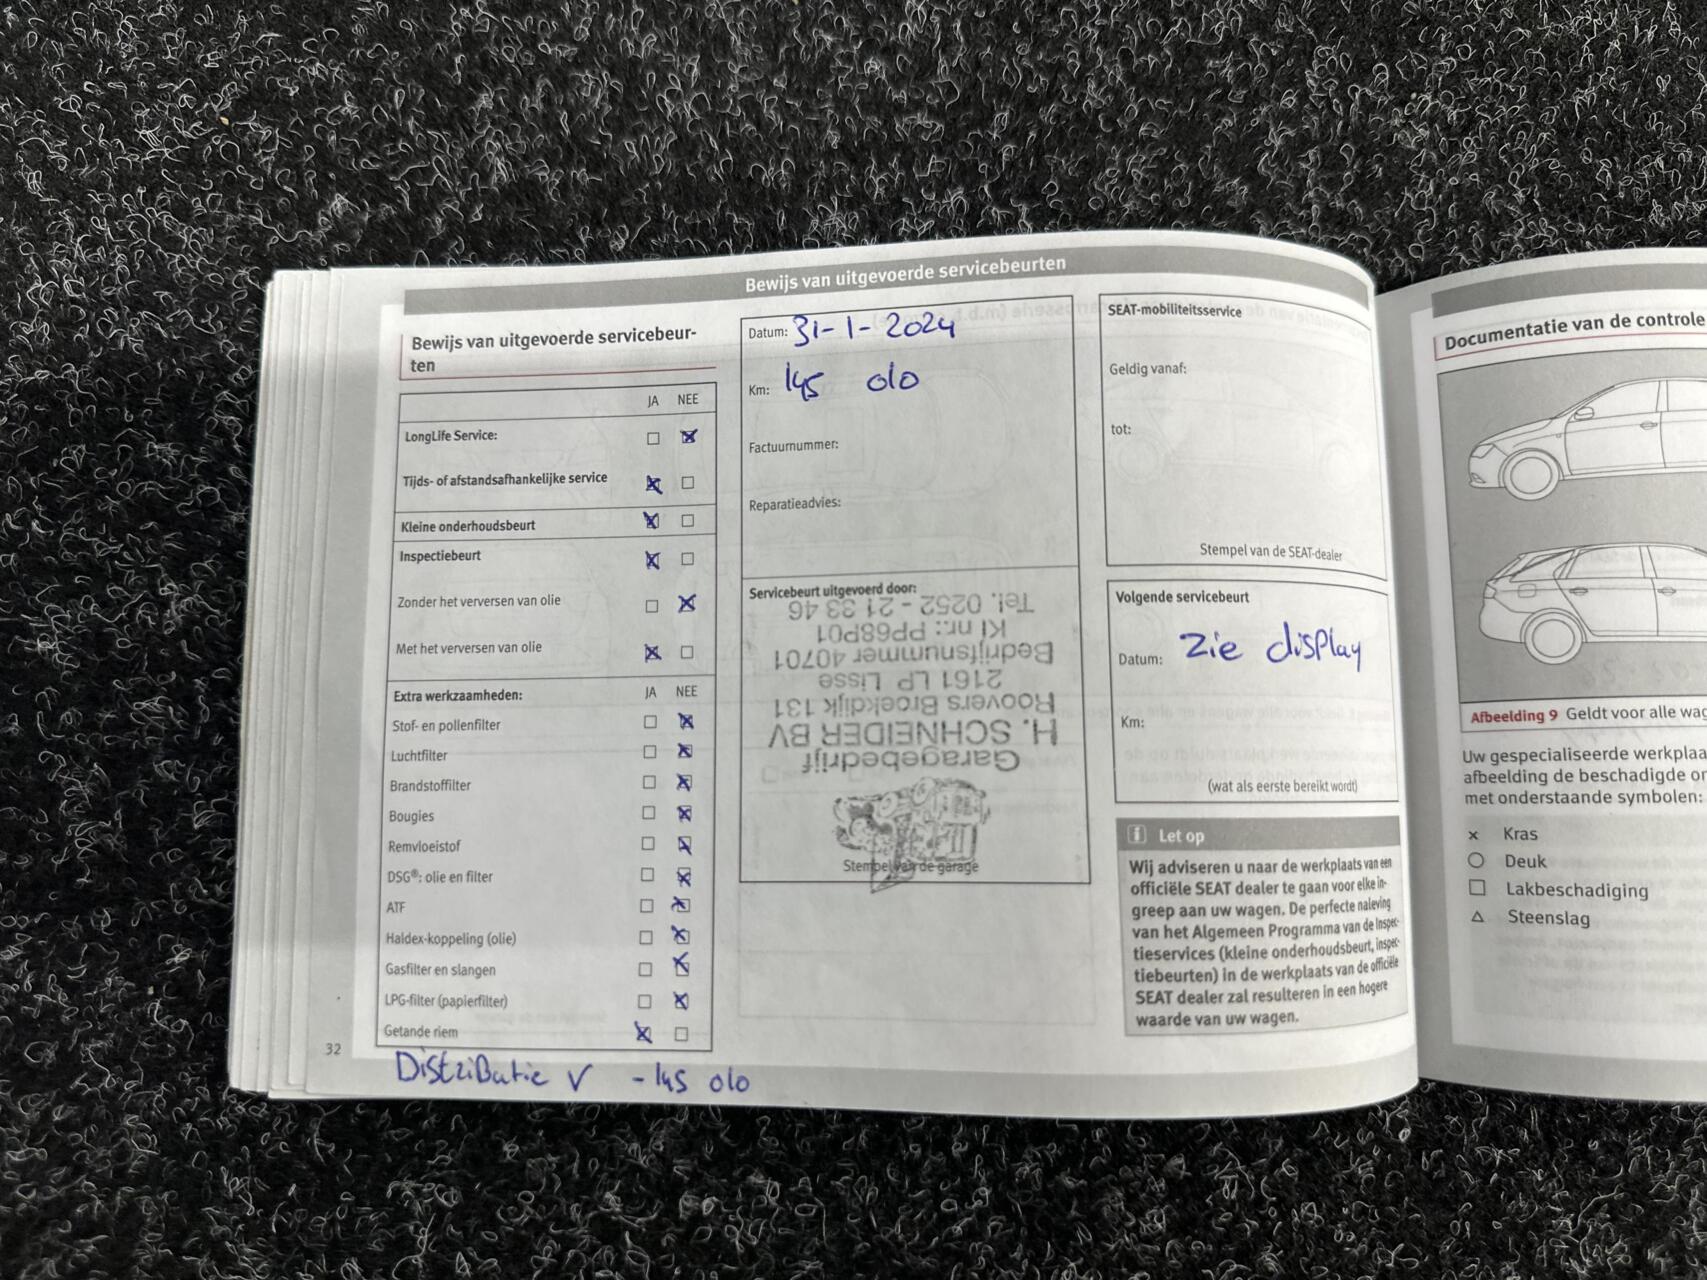 Bewijs van uitgevoerde servicebeurten
Bewijs van uitgevoerde servicebeur-
ten
JA NEE
LongLife Service:
Tijds- of afstandsafhankelijke service
Kleine onderhoudsbeurt
Inspectiebeurt
Zonder het verversen van olie
Met het verversen van olie
Extra werkzaamheden: JA NEE
Stof- en pollenfilter
Luchtfilter
Brandstoffilter
Bougies
Remvloeistof
DSG®: olie en filter
ATF
Haldex-koppeling (olie)
Gasfilter en slangen
LPG-filter (papierfilter)
Getande riem
Distributie V - 145 010
32
Datum: 31-1-2024
Km: 145 010
Factuurnummer:
Reparatieadvies:
Servicebeurt uitgevoerd door:
Garagebedrijf
H. SCHNEIDER BV
Roovers Broekdijk 131
2161 LP Lisse
Bedrijfsnummer 40701
KI nr.: PP68P01
Tel. 0252 - 21 33 46
Stempel van de garage
SEAT-mobiliteitsservice
Geldig vanaf:
tot:
Stempel van de SEAT-dealer
Volgende servicebeurt
Datum: Zie display
Km:
(wat als eerste bereikt wordt)
i Let op
Wij adviseren u naar de werkplaats van een
officiële SEAT dealer te gaan voor elke in-
greep aan uw wagen. De perfecte naleving
van het Algemeen Programma van de Inspec-
tieservices (kleine onderhoudsbeurt, inspec-
tiebeurten) in de werkplaats van de officiële
SEAT dealer zal resulteren in een hogere
waarde van uw wagen.
Documentatie van de controle
Afbeelding 9 Geldt voor alle wag
Uw gespecialiseerde werkplaa
afbeelding de beschadigde on
met onderstaande symbolen:
× Kras
○ Deuk
□ Lakbeschadiging
△ Steenslag